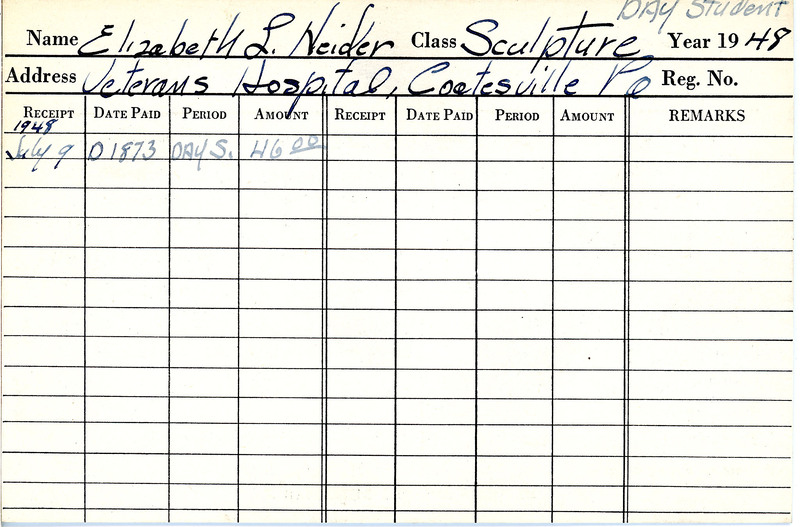 DAY Student
Name Elizabeth L. Neider Class Sculpture Year 1948
Address Veterans Hospital, Coatesville Pa Reg. No.
RECEIPT DATE PAID PERIOD AMOUNT RECEIPT DATE PAID PERIOD AMOUNT REMARKS
1948
July 9 D1873 DAY S. 46 00